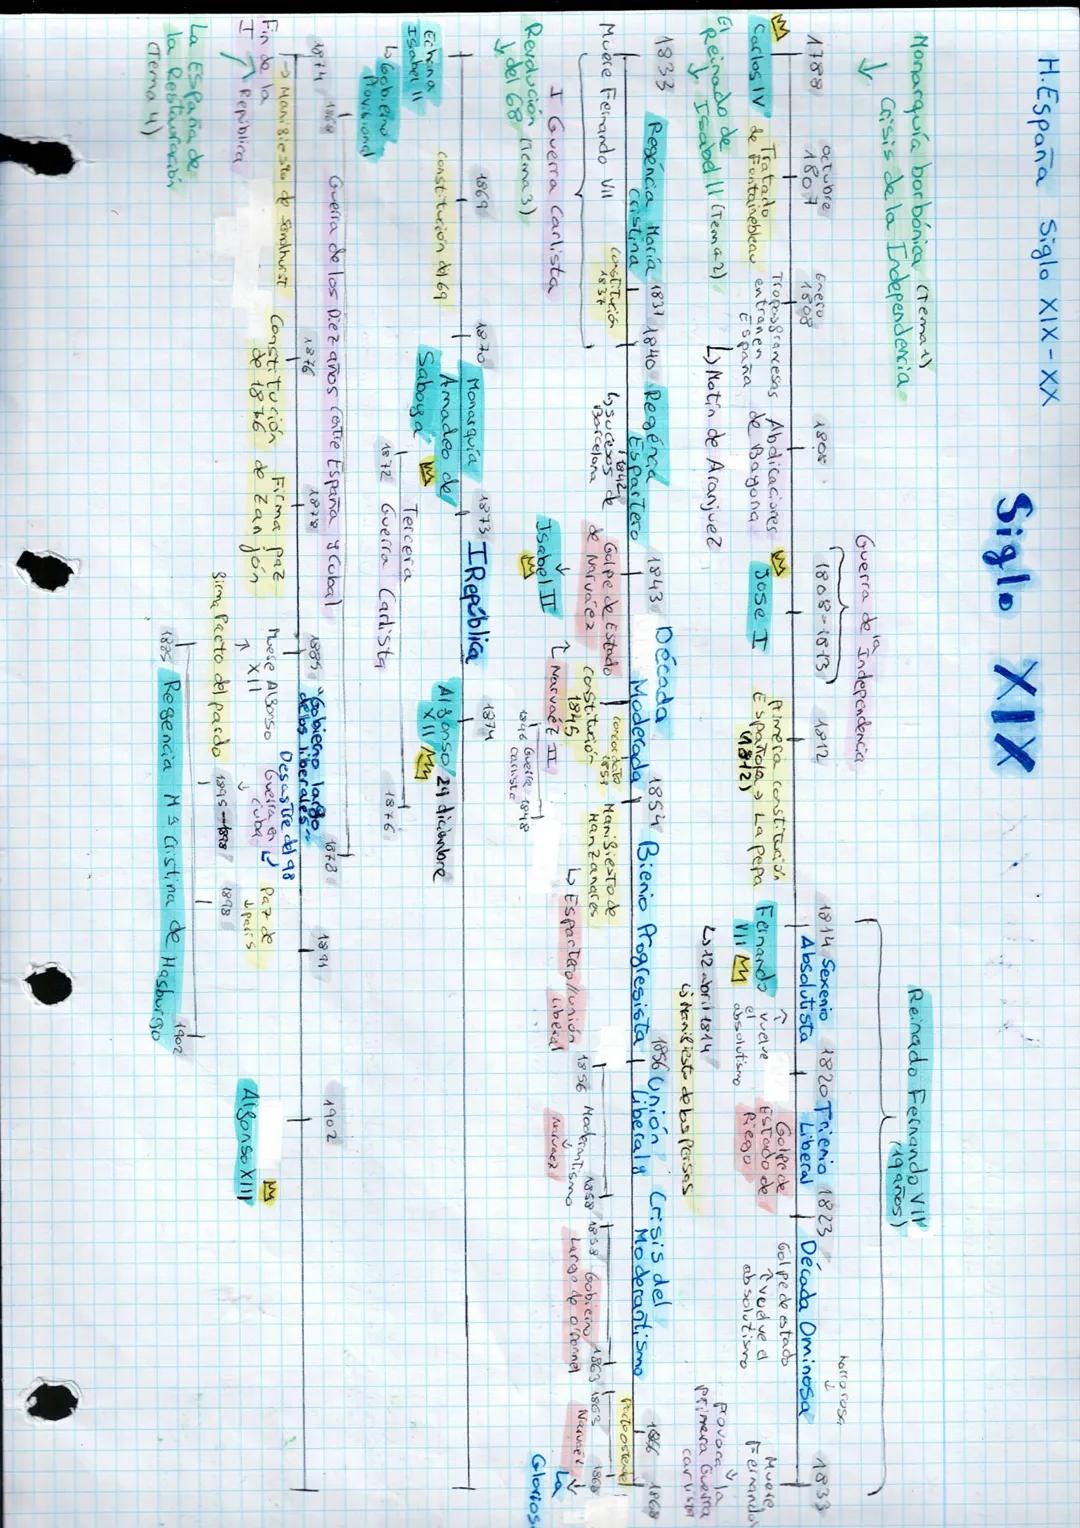 H.España Siglo XIX-XX
Siglo XIX
Monarquía borbónica (Tema 1)
↓ Crisis de la Independencia.
Reinado Fernando VII
(19 años)
Guerra de la Independencia
horrorosa
1788
octubre
1807
Enero
1808
1808
1808-1813
1812
1814 Sexenio
Absolutista
1820 Trienio
Liberal
1823
Década Ominosa
1833
Carlos IV
Tratado
de Fontainebleau
Tropas francesas
entran en
España
↳ Motín de Aranjuez
Abdicaciones
de Bayona
José I
Primera constitución
Española → La pepa
(1812)
Fernando
VII
↑ vuelve
el
absolutismo
↳ 12 abril 1814
↳ Manifiesto de los persas
Golpe de
Estado de
Riego
Golpe de estado
↑ vuelve el
absolutismo
Muere
Fernando
↓
provoca la
primera Guerra
carlista
El Reinado de
↓ Isabel II (Tema 2)
1833
Regencia María
Cristina
1837
1840
Regencia
Espartero
1843
Década
Moderada
1854
Bienio Progresista
1856
Unión
Liberal y
Crisis del
Moderantismo
1866
1868
Muere Fernando VII
Constitución
1837
I Guerra Carlista
↳ sucesos de
Barcelona
1842
Golpe de Estado
de Narváez
↓
Isabel II
Constitución
1845
Concordato
1851
↑ Narváez II
1846 Guerra 1848
carlista
Manifiesto de
Manzanares
↳ Espartero//unión
Liberal
1856 Moderantismo 1858
Narváez
1858 Gobierno 1863
Largo de O'Donnel
1863 Narváez 1868
↓
La
Glorios
Revolución (Tema 3)
↓ del 68
Echan a
Isabel II
↳ Gobierno
Provisional
1868
1869
Constitución del 69
1870
Monarquía
Amadeo de
Saboya
1873
I República
1874
Alfonso
XII
29 diciembre
1872
Tercera
Guerra Carlista
1876
Guerra de los Diez años (entre España y Cuba)
1878
1874
→ Manifiesto de Sandhurst
Fin de la
I República
La España de
la Restauración
(Tema 4)
1876
Constitución
de 1876
1878
Firma paz
de Zanjón
1885
Muere Alfonso
XII
↑
firma Pacto del pardo
"Gobierno largo
de los liberales"
Desastre del 98
Guerra en
Cuba
↓
1895-1898
Paz de
París
1898
1885 Regencia Mª Cristina de Hasburgo 1902
1902
Alfonso XIII